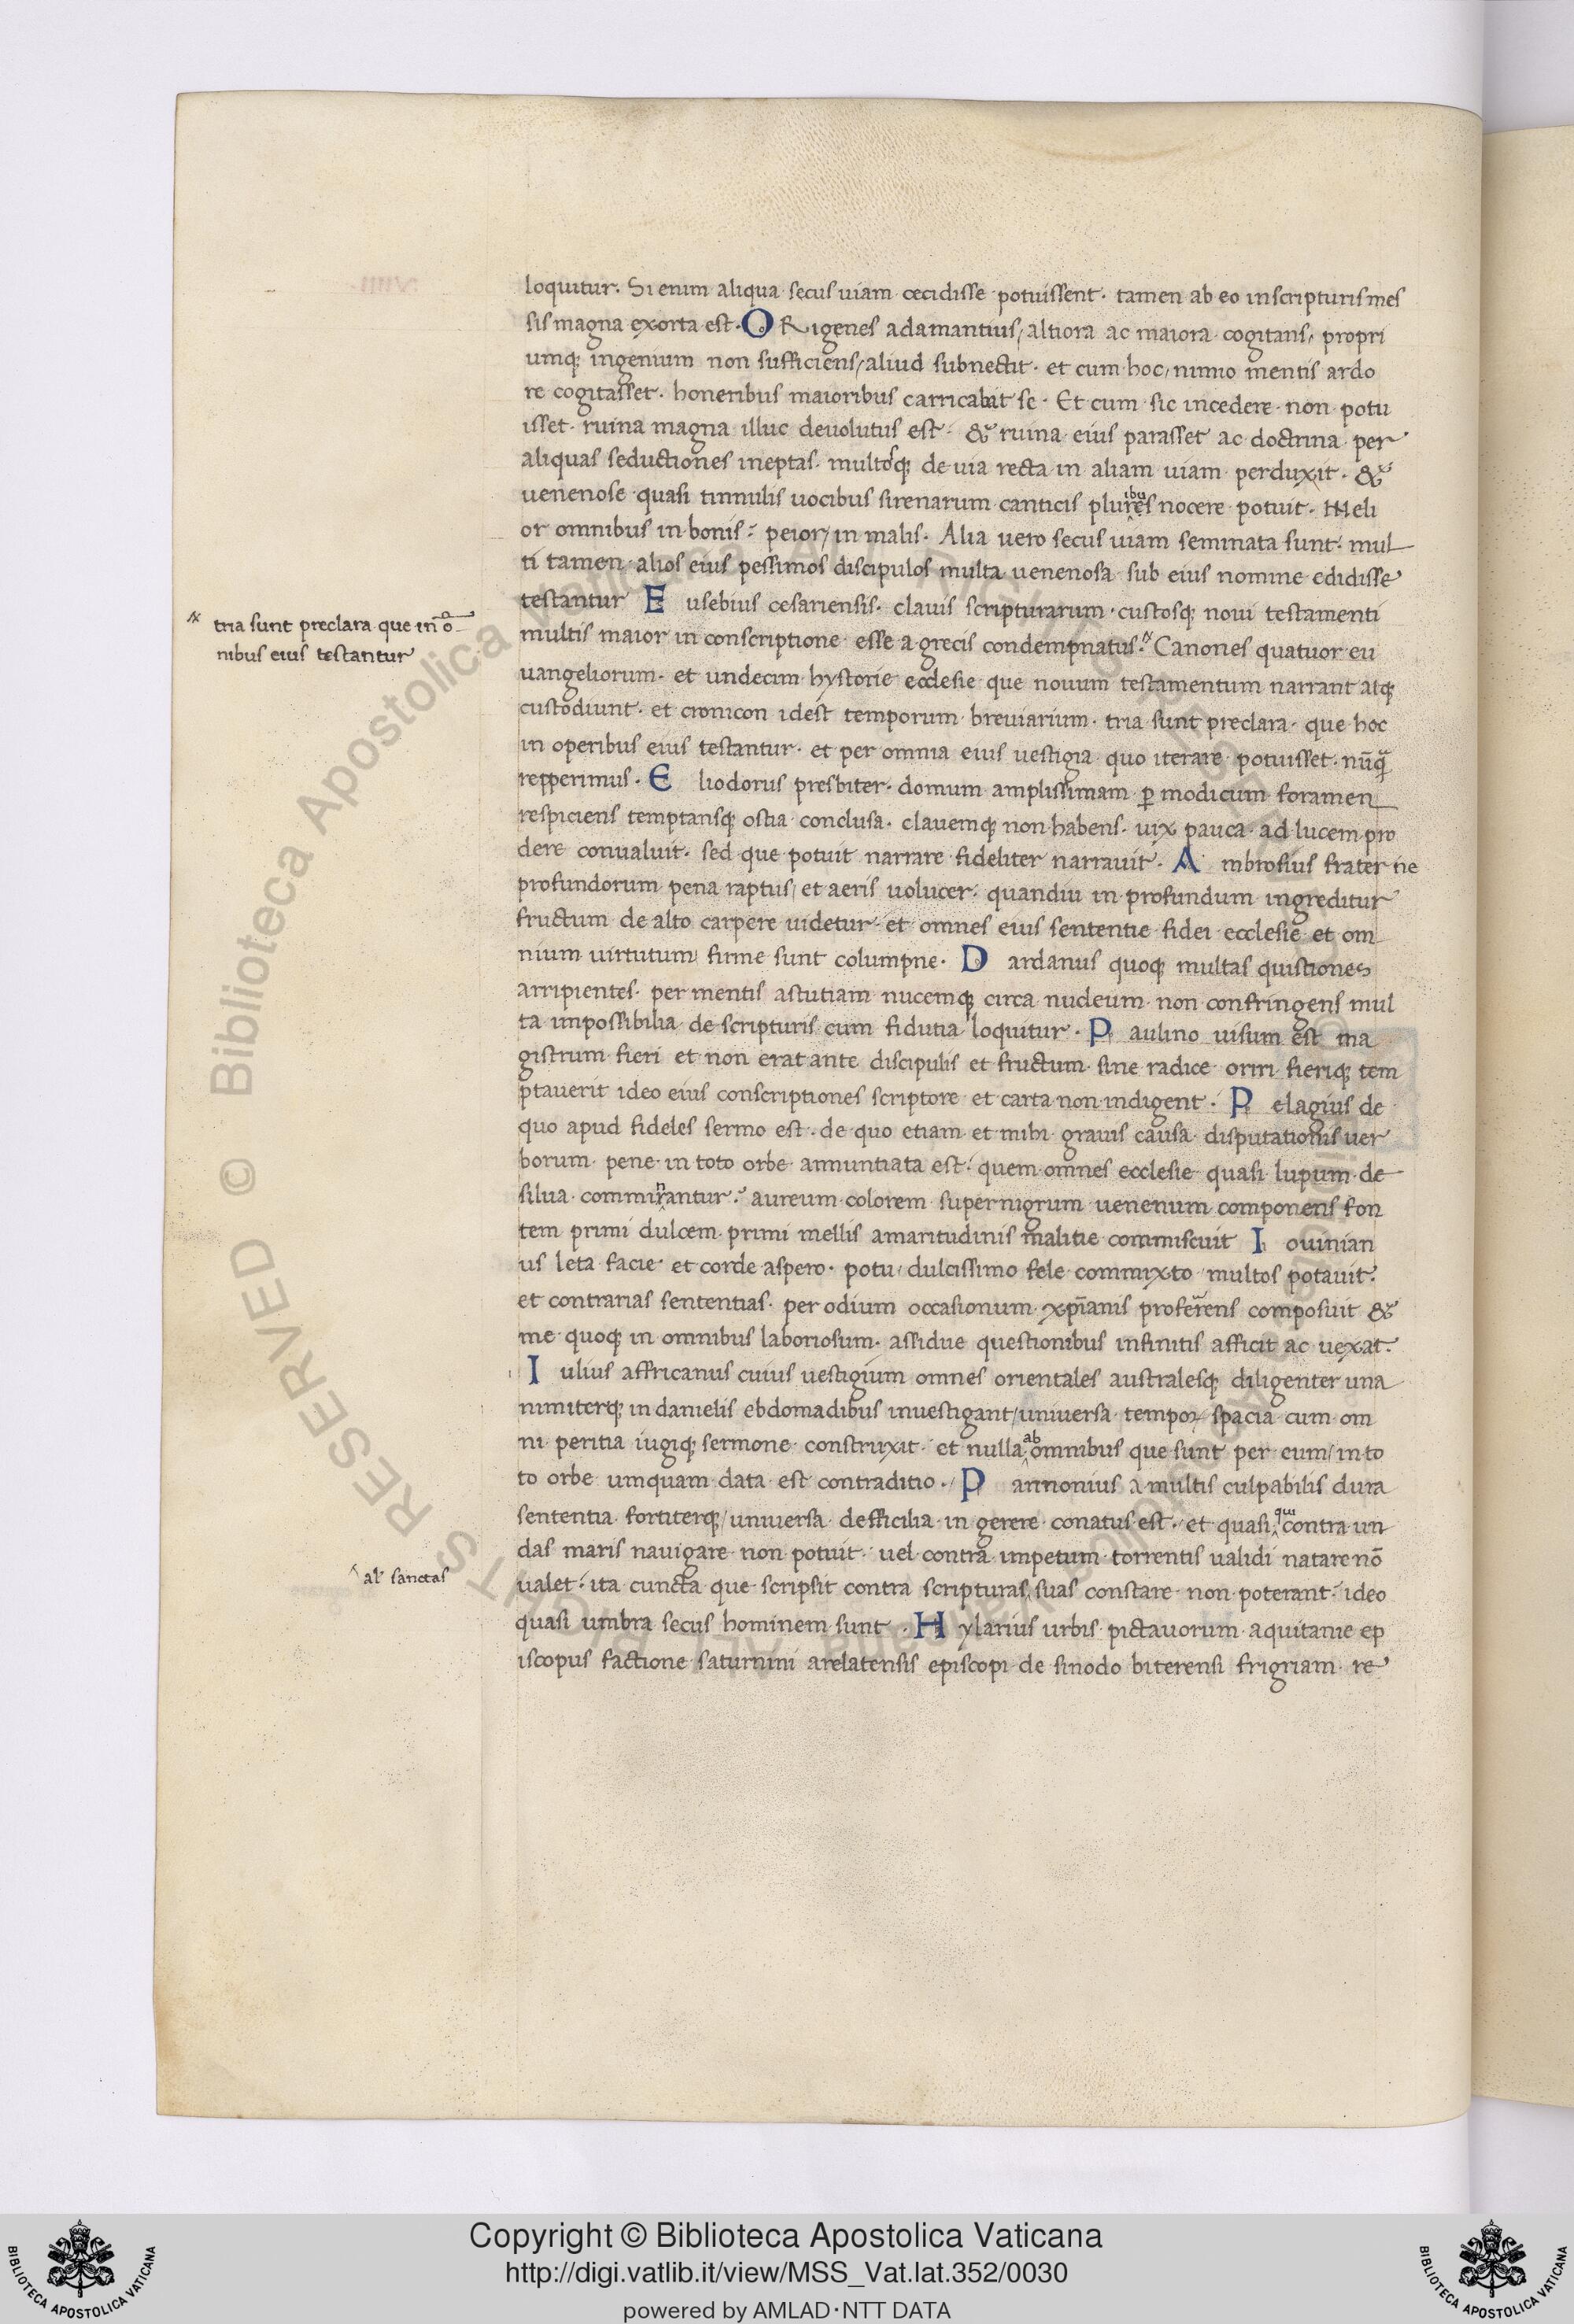 loquitur. Si enim aliqua secus uiam cecidisse potuissent. tamen ab eo in scripturis mes
sis magna exorta est. ORigenes adamantius, altiora ac maiora cogitans, propri
umq; ingenium non sufficiens, aliud subnectit. et cum hoc, nimio mentis ardo
re cogitasset. honeribus maioribus carricabit se. Et cum sic incedere non potu
isset. ruina magna illuc deuolutus est. & ruina eius parasset ac doctrina per
aliquas seductiones ineptas. multosq; de uia recta in aliam uiam perduxit. &
uenenose quasi tinnulis uocibus sirenarum canticis plures nocere potuit. Meli
ibu
or omnibus in bonis: peior, in malis. Alia uero secus uiam seminata sunt. mul
ti tamen alios eius pessimos discipulos multa uenenosa sub eius nomine edidisse
testantur Eusebius cesariensis. clauis scripturarum custosq; noui testamenti
tria sunt preclara que in o
nibus eius testantur
multis maior in conscriptione esse a grecis condempnatus. Canones quatuor eu
uangeliorum. et undecim hystorie ecclesie que nouum testamentum narrant atq;
custodiunt. et cronicon idest temporum breuiarium. tria sunt preclara. que hoc
in operibus eius testantur. et per omnia eius uestigia quo iterare potuisset. nūq̄
repperimus. Eliodorus presbiter. domum amplissimam p modicum foramen
respiciens temptansq; ostia conclusa. clauemq; non habens. uix pauca ad lucem pro
dere conualuit. sed que potuit narrare fideliter narrauit. Ambrosius frater ne
profundorum pena raptus, et aeris uolucer. quandiu in profundum ingreditur
fructum de alto carpere uidetur. et omnes eius sententie fidei ecclesie et om
nium uirtutum firme sunt columpne. Dardanus quoq; multas quistiones
arripientes. per mentis astutiam nucemq; circa nucleum non confringens mul
ta impossibilia de scripturis cum fidutia loquitur. Paulino uisum est ma
gistrum fieri et non erat ante discipulis et fructum sine radice oriri fieriq; tem
ptauerit ideo eius conscriptiones scriptore et carta non indigent. Pelagius de
quo apud fideles sermo est. de quo etiam et mihi grauis causa disputationis uer
borum pene in toto orbe annuntiata est. quem omnes ecclesie quasi lupum de
silua commirantur. aureum colorem super nigrum uenenum componens fon
n
tem primi dulcem primi mellis amaritudinis malitie commiscuit Iouinian
us leta facie et corde aspero. potu dulcissimo fele commixto multos potauit.
et contrarias sententias. per odium occasionum xp̄ianis proferens composuit &
me quoq; in omnibus laboriosum. assidue questionibus infinitis afficit ac uexat.
Iulius affricanus cuius uestigium omnes orientales australesq; diligenter una
nimiterq; in danielis ebdomadibus inuestigant, uniuersa tempoꝝ spacia cum om
ni peritia iugiq; sermone construxit. et nulla omnibus que sunt per eum, in to
ab
to orbe umquam data est contraditio. Pannonius a multis culpabilis dura
sententia fortiterq; uniuersa defficilia in gerere conatus est. et quasi contra un
qui
das maris nauigare non potuit. uel contra impetum torrentis ualidi natare nō
al' sanctas
ualet. ita cuncta que scripsit contra scripturas suas constare non poterant. ideo
quasi umbra secus hominem sunt. Hylarius urbis pictauorum aquitanie ep
iscopus factione saturnini arelatensis episcopi de sinodo biterensi frigriam re
© Biblioteca Apostolica Vaticana
ALL RIGHTS RESERVED
Copyright © Biblioteca Apostolica Vaticana
http://digi.vatlib.it/view/MSS_Vat.lat.352/0030
powered by AMLAD·NTT DATA
BIBLIOTECA APOSTOLICA VATICANA
BIBLIOTECA APOSTOLICA VATICANA